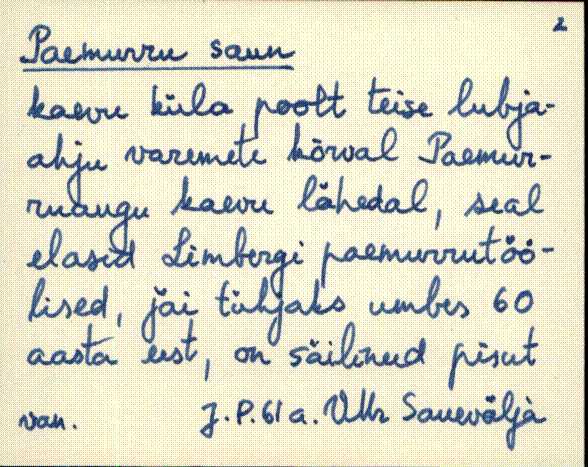 2
Paemurru saun
kaevu küla poolt teise lubja-
ahju varemete kõrval Paemur-
ruaugu kaevu lähedal, seal
elasid Limbergi paemurrutöö-
lised, jäi tühjaks umbes 60
aasta eest, on säilinud pisut
van. J.P. 61 a. VMr Sauevälja